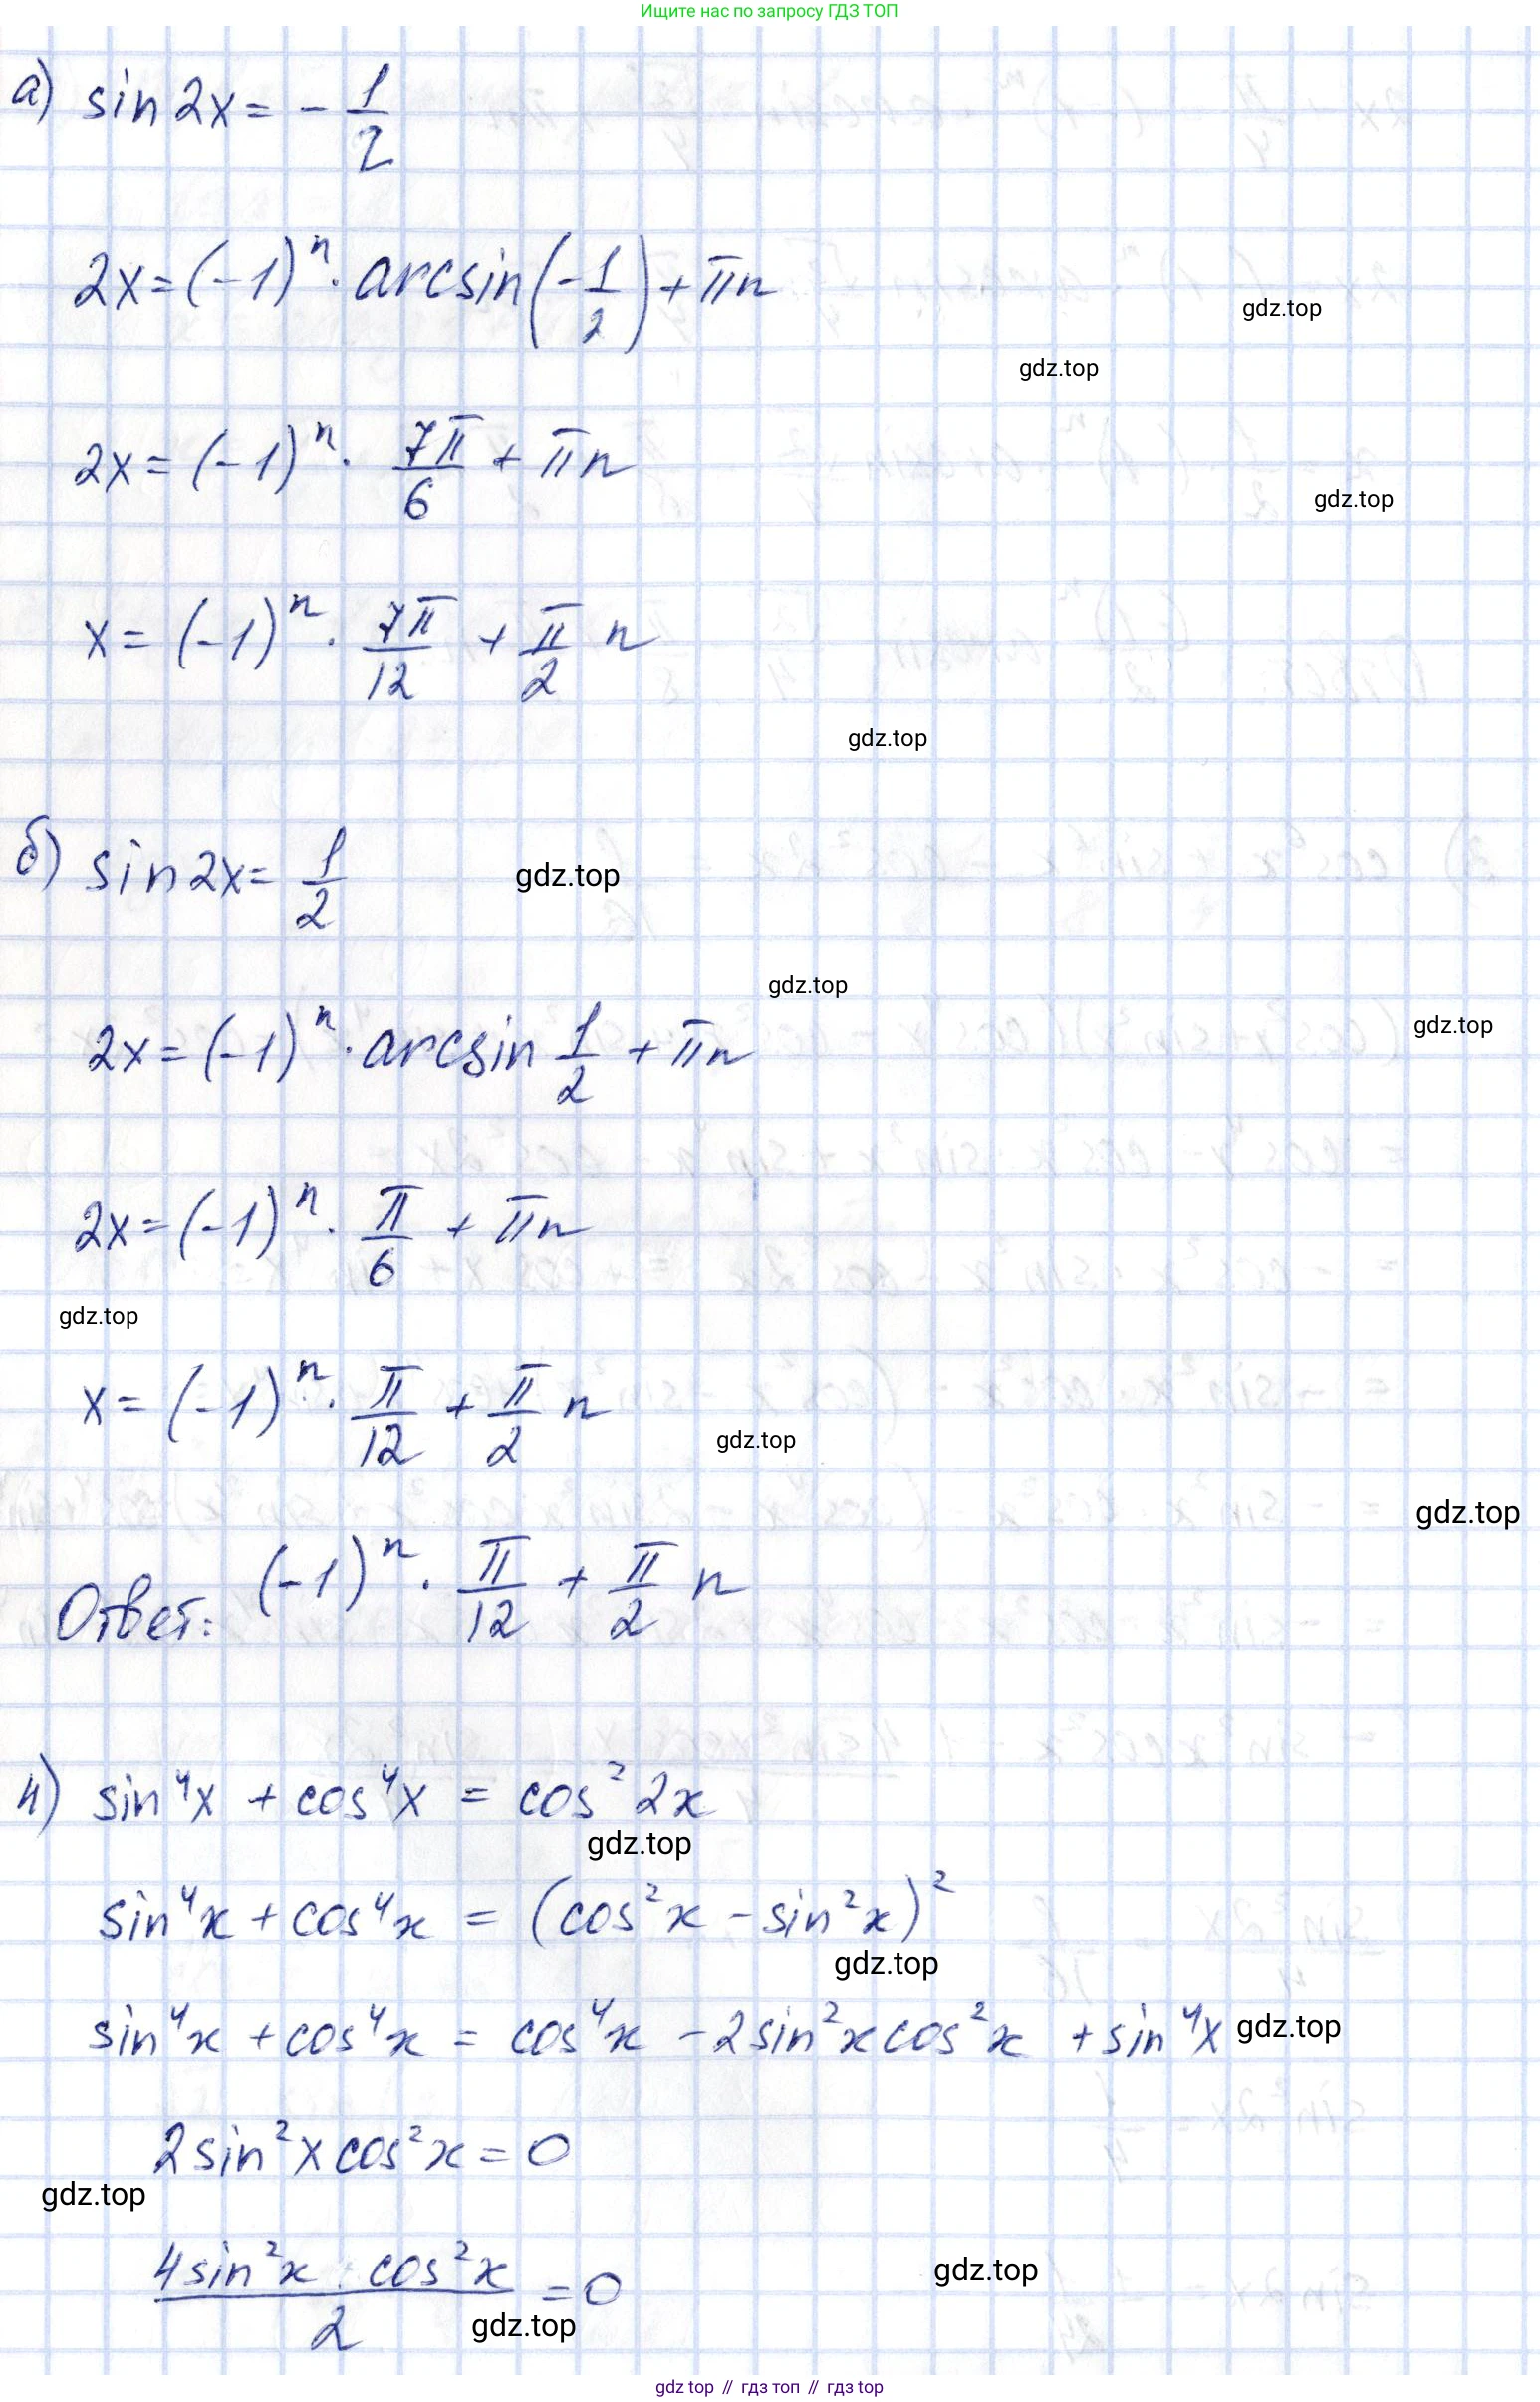 Ищите нас по запросу ГДЗ ТОП
а) sin 2x = - 1/2
2x = (-1)^n · arcsin(-1/2) + πn
gdz.top
gdz.top
2x = (-1)^n · 7π/6 + πn
gdz.top
x = (-1)^n · 7π/12 + π/2 n
gdz.top
б) sin 2x = 1/2
gdz.top
gdz.top
gdz.top
2x = (-1)^n · arcsin 1/2 + πn
2x = (-1)^n · π/6 + πn
gdz.top
x = (-1)^n · π/12 + π/2 n
gdz.top
gdz.top
Ответ: (-1)^n · π/12 + π/2 n
4) sin⁴x + cos⁴x = cos² 2x
gdz.top
sin⁴x + cos⁴x = (cos²x - sin²x)²
gdz.top
sin⁴x + cos⁴x = cos⁴x - 2sin²x cos²x + sin⁴x gdz.top
2sin²x cos²x = 0
gdz.top
4sin²x · cos²x / 2 = 0
gdz.top
gdz.top
gdz top // гдз топ // гдз top